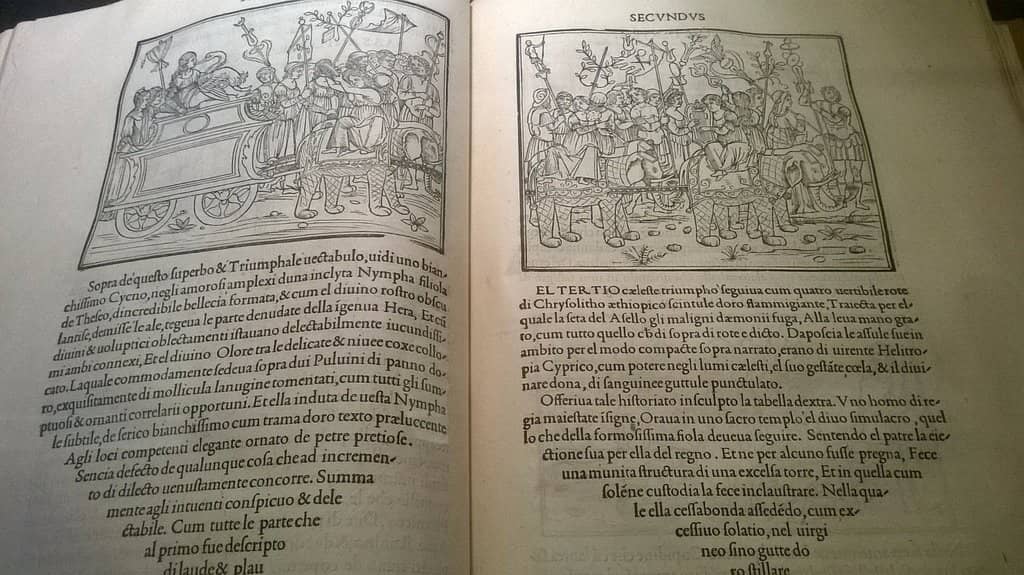 Sopra de questo superbo & Triumphale uectabulo, uidi uno bian-
chissimo Cycno, negli amorosi amplexi duna inclyta Nympha filiola
de Theseo, dincredibile bellecia formata, & cum el diuino rostro obscu
lantise, demisse le ale, tegeua le parte denudate della igenua Hera, Et cũ
diuini & uoluptici oblectamenti istauano delectabilmente iucundissi-
mi ambi connexi, Et el diuino Olore tra le delicate & niuee coxe collo-
cato. Laquale commodamente sedeua sopra dui Puluini di panno do-
ro, exquisitamente di mollicula lanugine tomentati, cum tutti gli sum-
ptuosi & ornanti correlarii opportuni. Et ella induta de uesta Nympha
le subtile, de serico bianchissimo cum trama doro texto præluccente
Agli loci competenti elegante ornato de petre pretiose.
Sencia defecto de qualunque cosa che ad incremen-
to di dilecto uenustamente concorre. Summa
mente agli intuenti conspicuo & dele
ctabile. Cum tutte le parte che
al primo fue descripto
di laude & plau
SECVNDVS
EL TERTIO cæleste triumpho seguiua cum quatro uertibile rote
di Chrysolitho æthiopico scintule doro flammigiante, Traiecta per el
quale la seta del Asello gli maligni dæmonii fuga, Alla leua mano gra-
to, cum tutto quello ch̃ di sopra di rote e dicto. Daposcia le assule sue in
ambito per el modo compacte sopra narrato, erano di uirente Helitro-
pia Cyprico, cum potere negli lumi cælesti, el suo gestãte cœla, & il diui-
nare dona, di sanguinee guttule punctulato.
Offeriua tale historiato insculpto la tabella dextra. Vno homo di re-
gia maiestate isigne, Oraua in uno sacro templo el diuo simulacro, quel
lo che della formosissima fiola deueua seguire. Sentendo el patre la eie-
ctione sua per ella del regno. Et ne per alcuno fusse pregna, Fece
una munita structura di una excelsa torre, Et in quella cum
soléne custodia la fece inclaustrare. Nella qua-
le ella cessabonda assedédo, cum ex-
cessiuo solatio, nel uirgi
neo sino gutte do
ro stillare